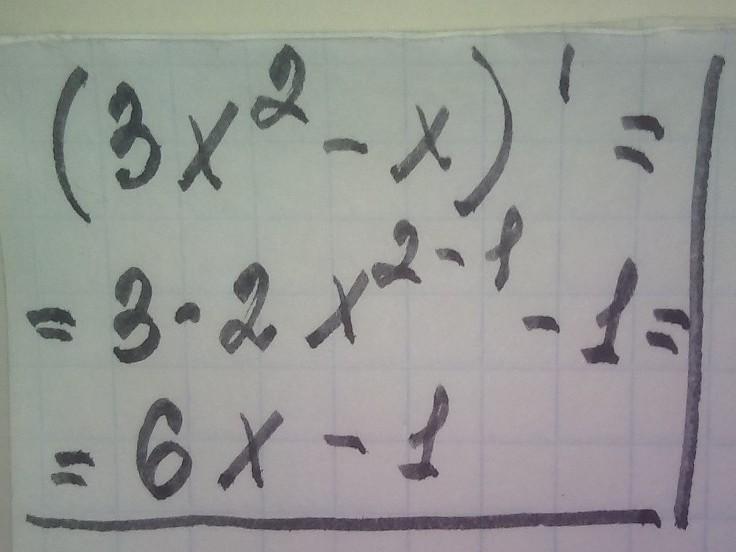 (3x² - x)' =
= 3 · 2x²⁻¹ - 1 =
= 6x - 1